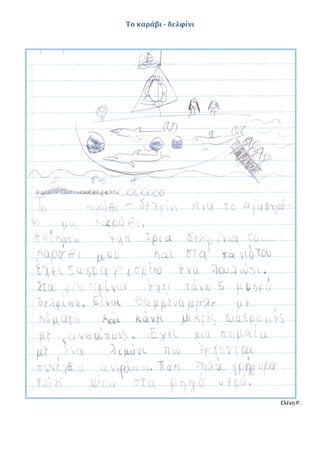 Το καράβι - δελφίνι
Το καράβι - δελφίνι είναι το αγαπημέ-
νο μου καράβι.
έχει τρία δελφίνια το
καράβι μου και στα πανιά του
έχει ζωγραφισμένο ένα λουλούδι.
Στα έχει πάνω 5 μικρά
δελφίνια. Είναι με
κύματα και κάνει μικρές διαδρομές
με ανθώπους. Έχει μια σημαία
με ένα λιμάνι που έρχονται
συνέχεια άνθρωποι. Πάει πολύ γρήγορα
μέσα στα ρηχά νερά.
Ελένη Ρ.